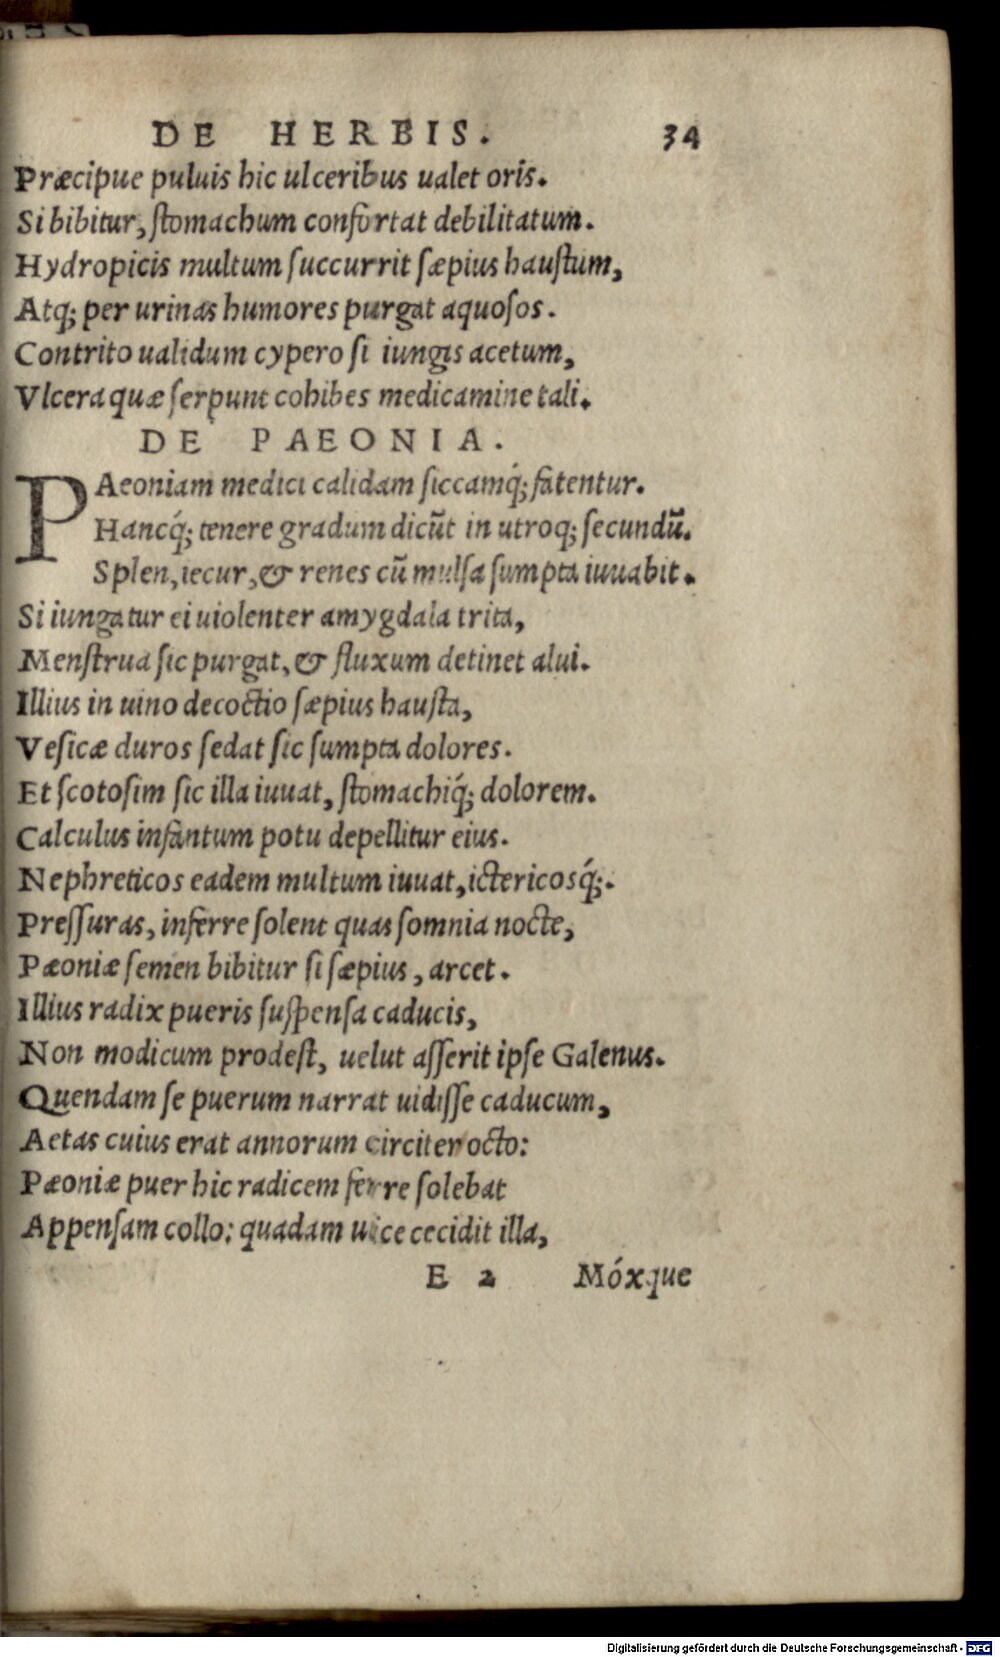 DE HERBIS. 34
Præcipue puluis hic ulceribus ualet oris.
Si bibitur, stomachum confortat debilitatum.
Hydropicis multum succurrit sæpius haustum,
Atq; per urinas humores purgat aquosos.
Contrito ualidum cypero si iungis acetum,
Vlcera quæ serpunt cohibes medicamine tali.
DE PAEONIA.
PAeoniam medici calidam siccamq́; fatentur.
Hancq́; tenere gradum dicūt in utroq; secundū.
Splen, iecur, & renes cū mulsa sumpta iuuabit.
Si iungatur ei uiolenter amygdala trita,
Menstrua sic purgat, & fluxum detinet alui.
Illius in uino decoctio sæpius hausta,
Vesicæ duros sedat sic sumpta dolores.
Et scotosim sic illa iuuat, stomachiq́; dolorem.
Calculus infantum potu depellitur eius.
Nephreticos eadem multum iuuat, ictericosq́;.
Pressuras, inferre solent quas somnia nocte,
Pæoniæ semen bibitur si sæpius, arcet.
Illius radix pueris suspensa caducis,
Non modicum prodest, uelut asserit ipse Galenus.
Quendam se puerum narrat uidisse caducum,
Aetas cuius erat annorum circiter octo:
Pæoniæ puer hic radicem ferre solebat
Appensam collo: quadam uice cecidit illa,
E 2 Móxque
Digitalisierung gefördert durch die Deutsche Forschungsgemeinschaft - DFG